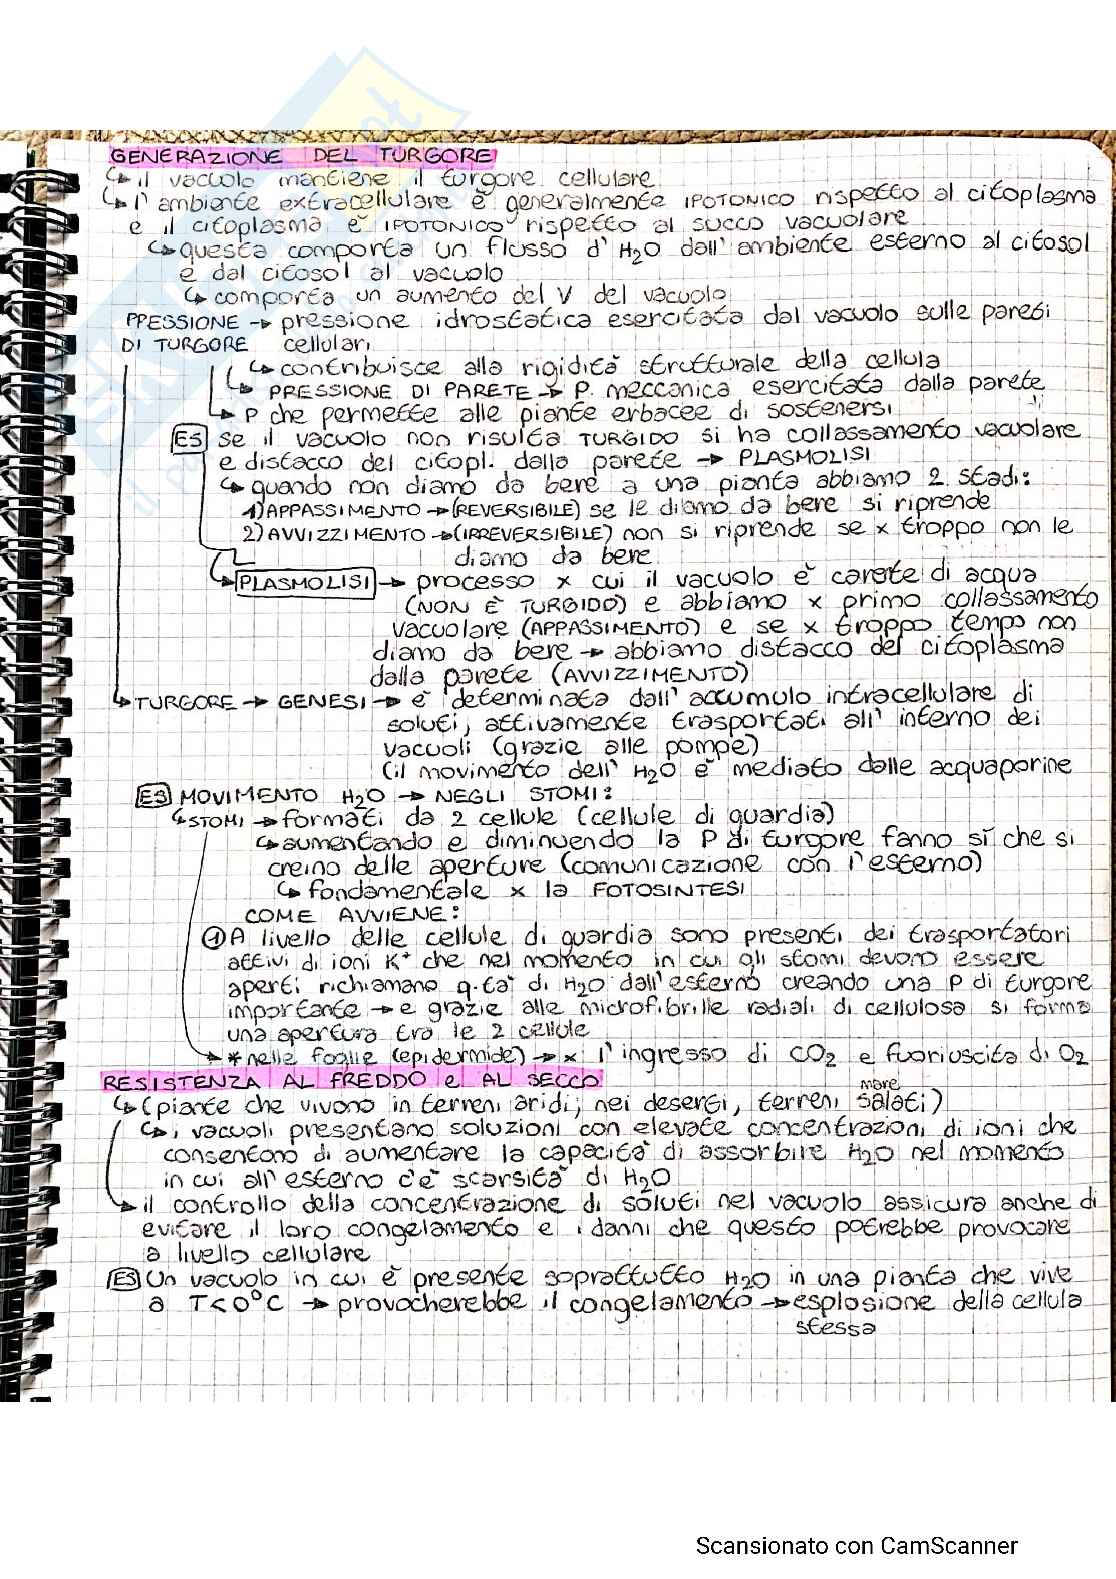 GENERAZIONE DEL TURGORE
↳ il vacuolo mantiene il turgore cellulare
↳ l'ambiente extracellulare è generalmente IPOTONICO rispetto al citoplasma
e il citoplasma è IPOTONICO rispetto al succo vacuolare
↳ questa comporta un flusso d'H₂O dall'ambiente esterno al citosol
e dal citosol al vacuolo
↳ comporta un aumento del V del vacuolo
PRESSIONE → pressione idrostatica esercitata dal vacuolo sulle pareti
DI TURGORE cellulari
↳ contribuisce alla rigidità strutturale della cellula
↳ PRESSIONE DI PARETE → P. meccanica esercitata dalla parete
↳ P che permette alle piante erbacee di sostenersi
ES se il vacuolo non risulta TURGIDO si ha collassamento vacuolare
e distacco del citopl. dalla parete → PLASMOLISI
↳ quando non diamo da bere a una pianta abbiamo 2 stadi:
1) APPASSIMENTO → (REVERSIBILE) se le diamo da bere si riprende
2) AVVIZZIMENTO → (IRREVERSIBILE) non si riprende se x troppo non le
diamo da bere
↳ PLASMOLISI → processo x cui il vacuolo è carete di acqua
(NON È TURGIDO) e abbiamo x primo collassamento
vacuolare (APPASSIMENTO) e se x troppo tempo non
diamo da bere → abbiamo distacco del citoplasma
dalla parete (AVVIZZIMENTO)
↳ TURGORE → GENESI → è determinata dall'accumulo intracellulare di
soluti, attivamente trasportati all'interno dei
vacuoli (grazie alle pompe)
(il movimento dell'H₂O è mediato dalle acquaporine
ES MOVIMENTO H₂O → NEGLI STOMI:
↳ STOMI → formati da 2 cellule (cellule di guardia)
↳ aumentando e diminuendo la P di turgore fanno sì che si
creino delle aperture (comunicazione con l'esterno)
↳ fondamentale x la FOTOSINTESI
COME AVVIENE:
① A livello delle cellule di guardia sono presenti dei trasportatori
attivi di ioni K⁺ che nel momento in cui gli stomi devono essere
aperti richiamano q.tà di H₂O dall'esterno creando una P di turgore
importante → e grazie alle microfibrille radiali di cellulosa si forma
una apertura tra le 2 cellule
↳ *nelle foglie (epidermide) → x l'ingresso di CO₂ e fuoriuscita di O₂
RESISTENZA AL FREDDO e AL SECCO
mare
↳ (piante che vivono in terreni aridi, nei deserti, terreni salati)
↳ i vacuoli presentano soluzioni con elevate concentrazioni di ioni che
consentono di aumentare la capacità di assorbire H₂O nel momento
in cui all'esterno c'è scarsità di H₂O
↳ il controllo della concentrazione di soluti nel vacuolo assicura anche di
evitare il loro congelamento e i danni che questo potrebbe provocare
a livello cellulare
ES Un vacuolo in cui è presente soprattutto H₂O in una pianta che vive
a T<0°C → provocherebbe il congelamento → esplosione della cellula
stessa
Scansionato con CamScanner